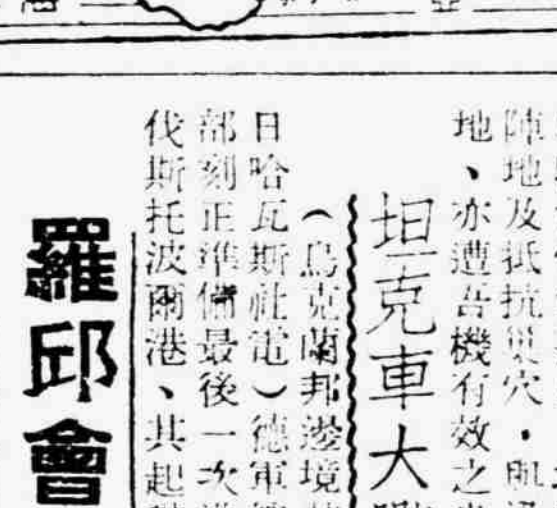 陣地及抵抗巢穴・
地、亦遭吾機有效之
坦克車大
（烏克蘭邦邊境
日哈瓦斯社電）德軍
部刻正準備最後一次
伐斯托波爾港、其起
羅邱會